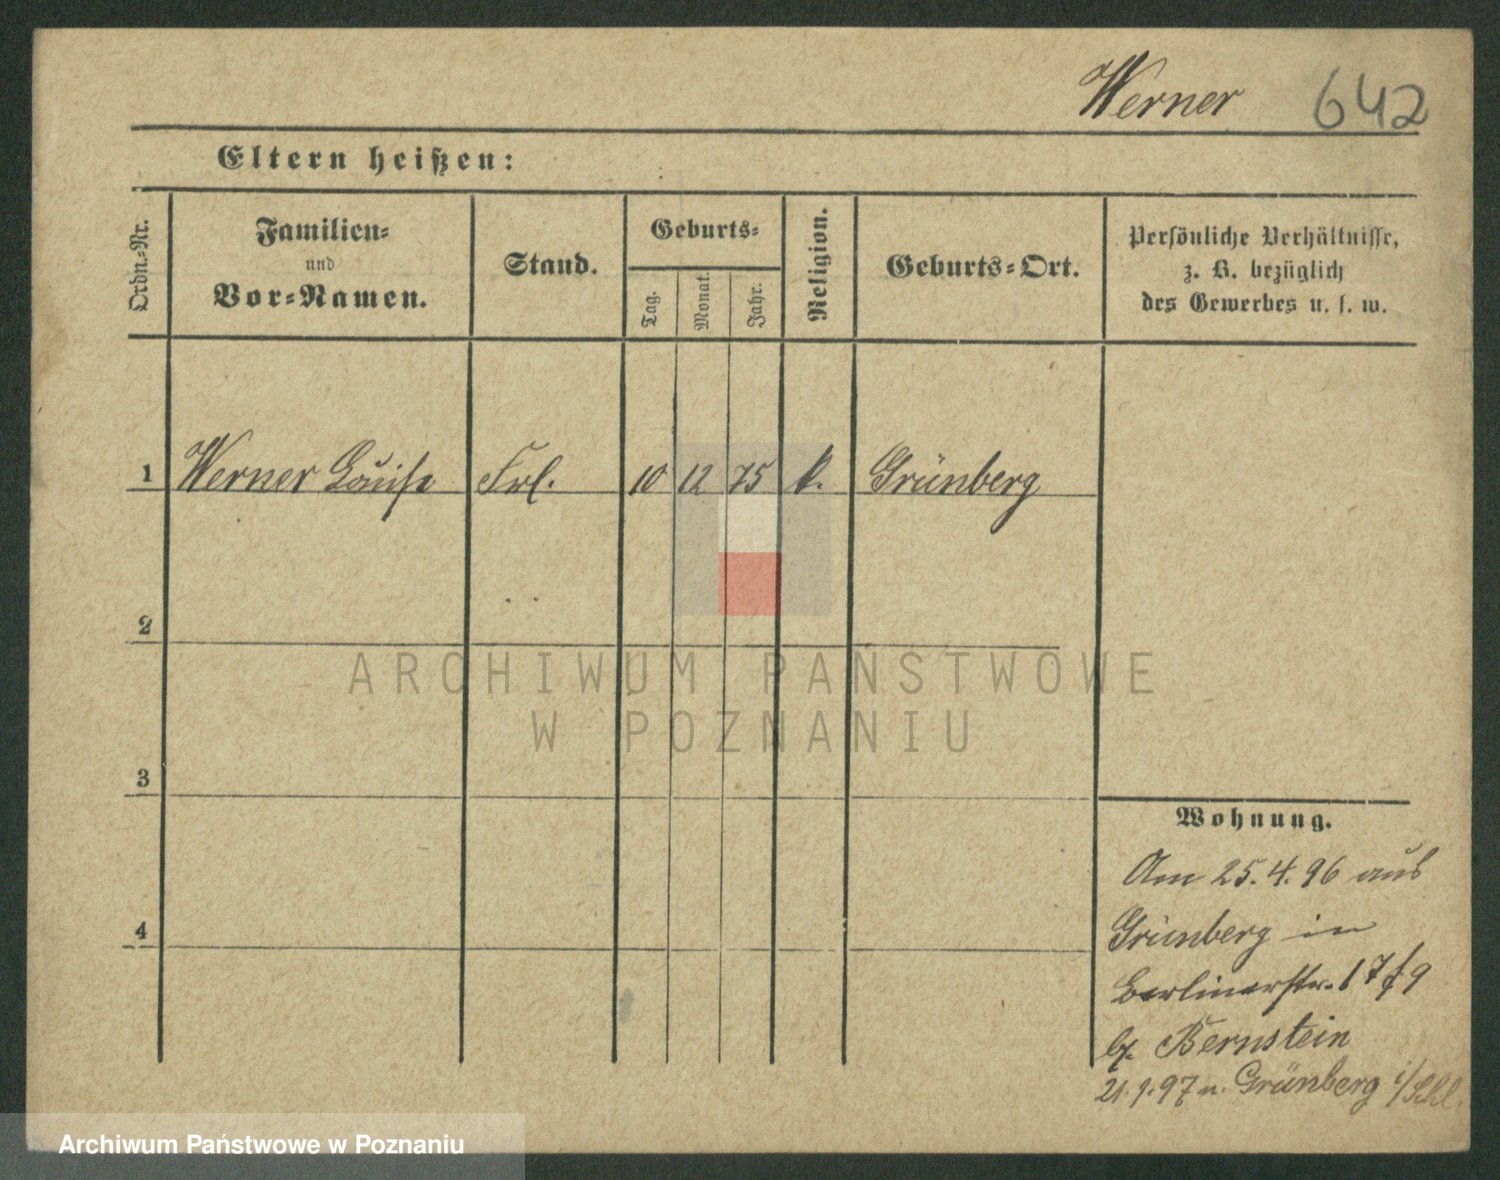 Werner 642
Eltern heißen:
Ordn.-Nr.
Familien-
und
Vor-Namen.
Stand.
Geburts-
Tag.
Monat.
Jahr.
Religion.
Geburts-Ort.
Persönliche Verhältnisse,
z. B. bezüglich
des Gewerbes u. s. w.
1 Werner Louise Frl. 10 12 75 k. Grünberg
2
3
4
ARCHIWUM PAŃSTWOWE
W POZNANIU
Wohnung.
Am 25.4.96 aus
Grünberg in
Berlinerstr. 17/19
b/. Bernstein
21.9.97 n. Grünberg i/Schl.
Archiwum Państwowe w Poznaniu